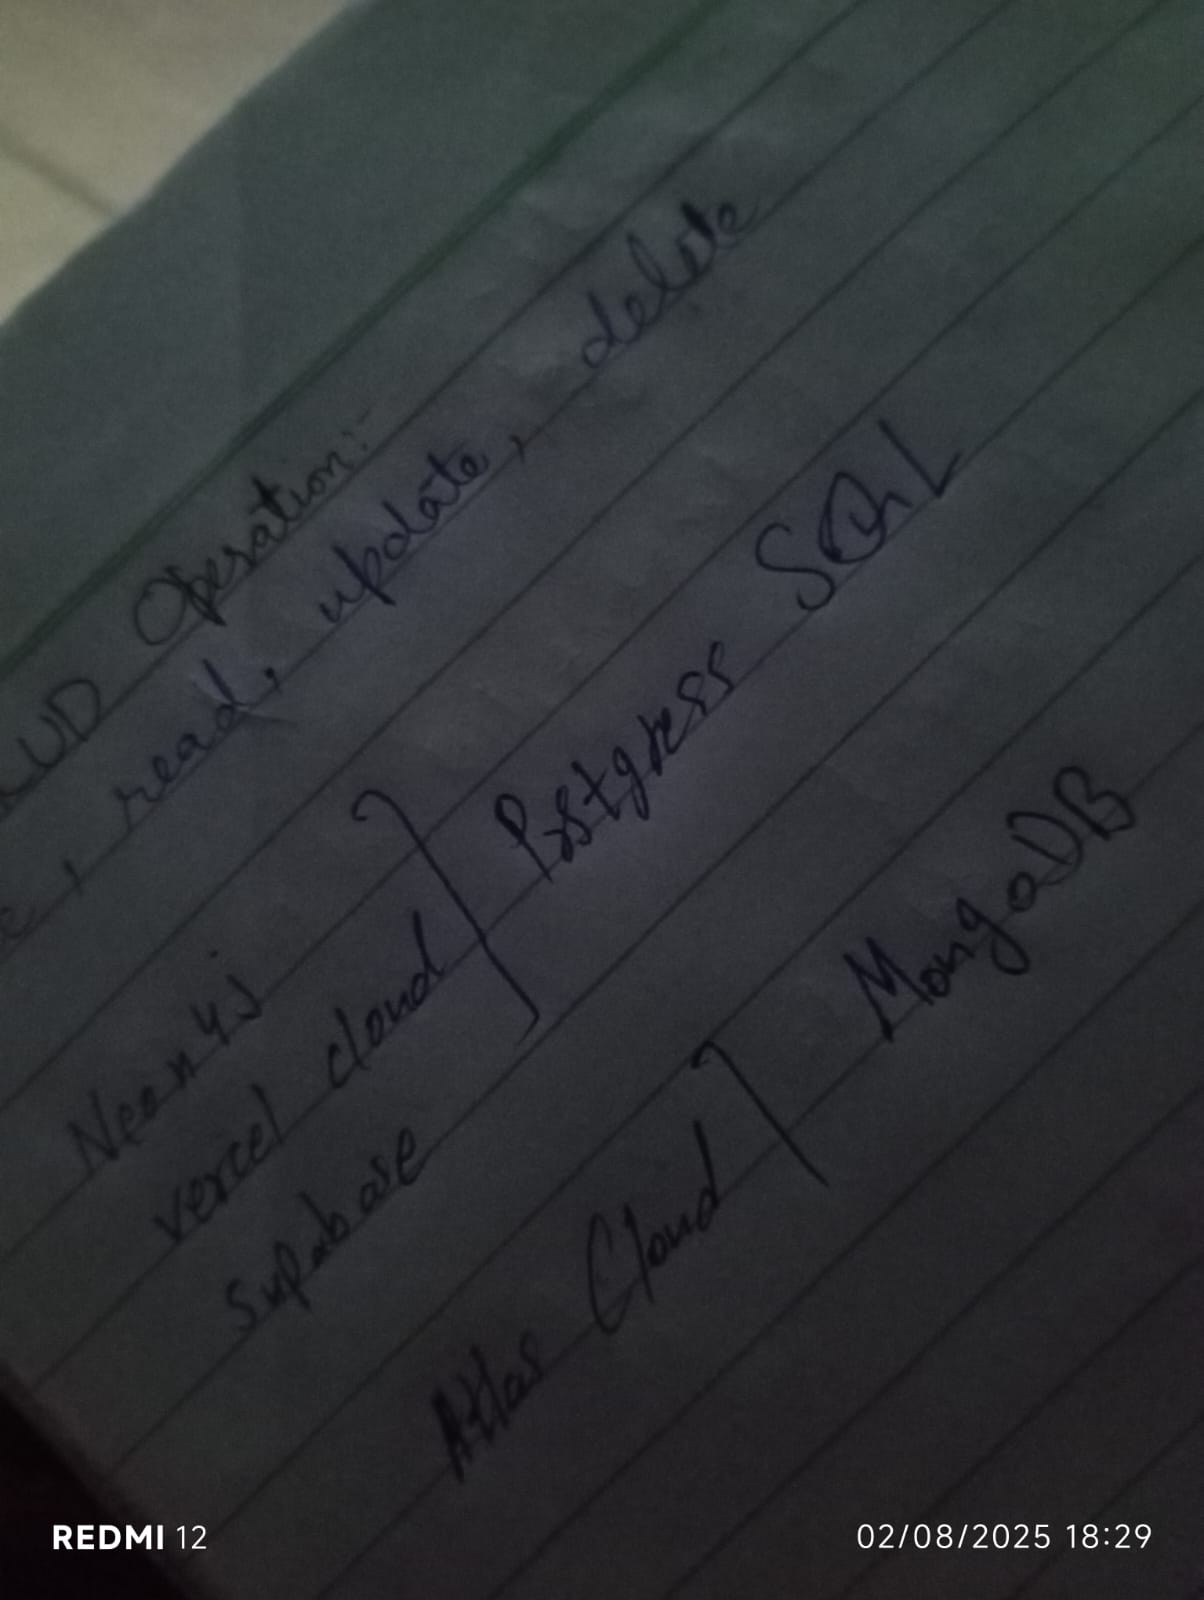 UD Operation:-
, read, update, delete
Neon 4j
vercel cloud
supabase
Postgress SQL
Atlas Cloud
MongoDB
REDMI 12
02/08/2025 18:29